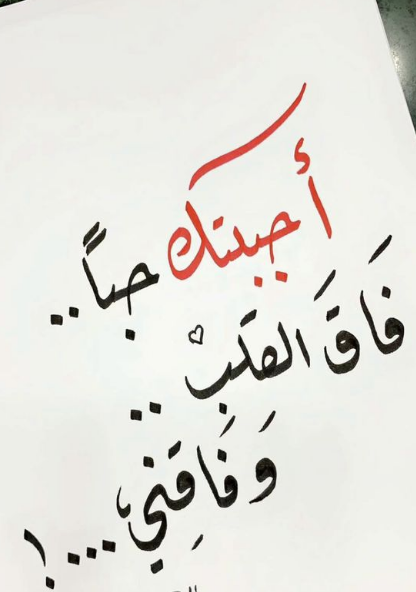 أحببتك حباً..
فَاقَ القلَب..
وَفَاقِني،...!